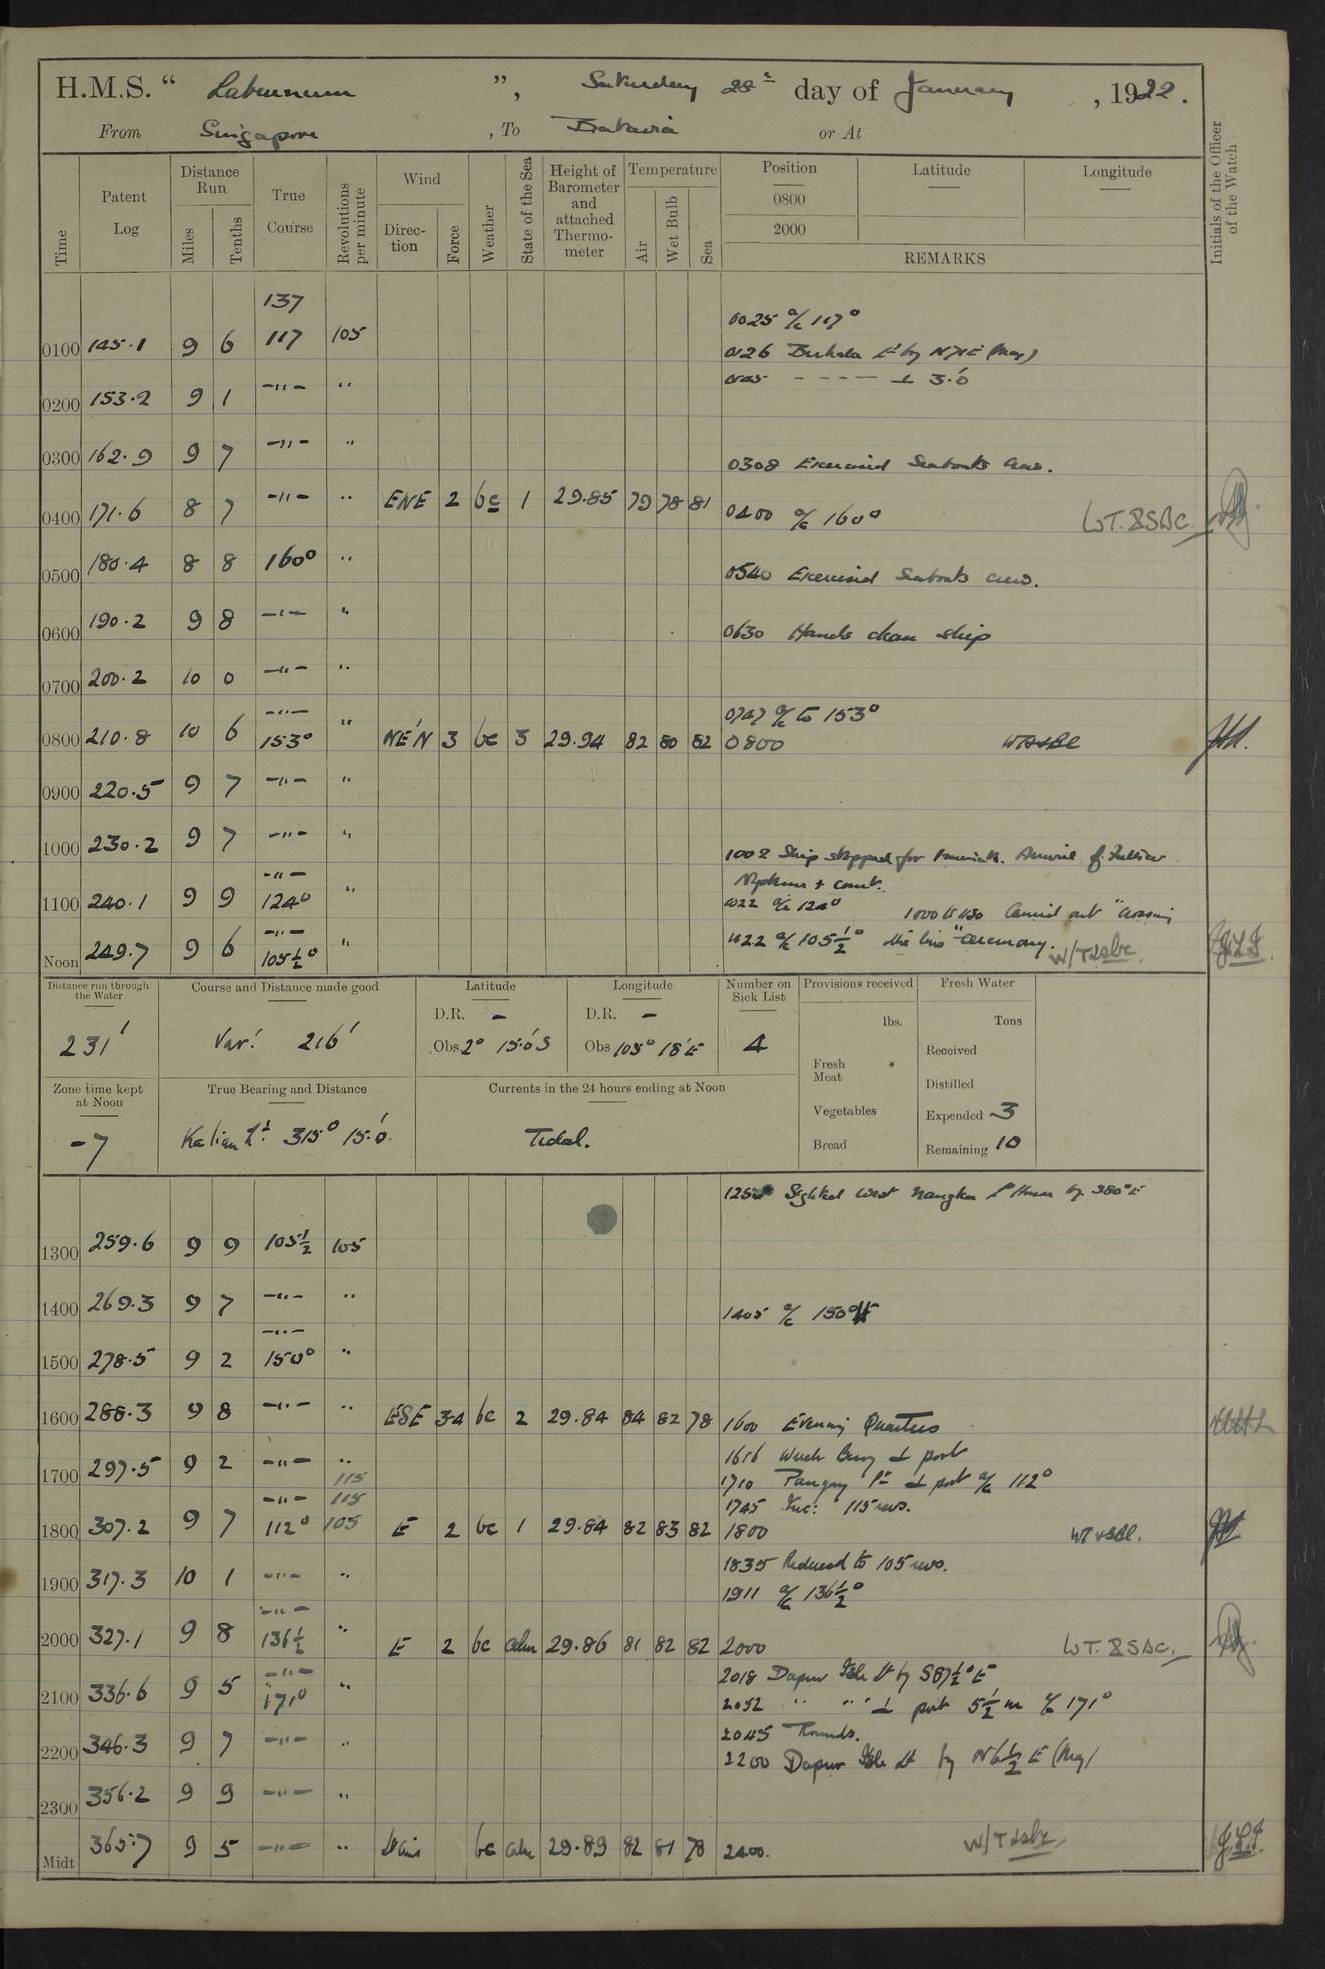 H.M.S. “ Laburnum ”, Saturday 28th day of January, 1922.
From Singapore, To Batavia or At
Time
Patent Log
Distance Run
Miles
Tenths
True Course
Revolutions per minute
Wind
Direction
Force
Weather
State of the Sea
Height of Barometer and attached Thermometer
Temperature
Air
Wet Bulb
Sea
Position Latitude Longitude
0800
2000
REMARKS
Initials of the Officer of the Watch
137
0025 a/c 117°
0100 145.1 9 6 117 105
0126
0200 153.2 9 1 -"- "
- - - - ⊥ 3.'0
0300 162.9 9 7 -"- "
0308 Exercised Seaboats crew.
0400 171.6 8 7 -"- " ENE 2 bc 1 29.85 79 78 81 0400 a/c 160° WT. & SBC.
0500 180.4 8 8 160° "
0540 Exercised Seaboats crew.
0600 190.2 9 8 -"- "
0630 Hands clean ship
0700 200.2 10 0 -"- "
-"- 0747 a/c to 153°
0800 210.8 10 6 153° " NE'N 3 bc 3 29.94 82 80 82 0800
0900 220.5 9 7 -"- "
1000 230.2 9 7 -"- "
1002 Ship stopped for Arrival of Father
Neptune & court.
-"-
1100 240.1 9 9 124° "
1022 a/c 124° 1000 to 1130 Carried out "Crossing
-"-
Noon 249.7 9 6 105½° "
1122 a/c 105½° the line" ceremony. W/T & sbc.
Distance run through the Water
231'
Course and Distance made good
Var: 216'
Latitude
D.R. -
Obs 2° 15.'0 S
Longitude
D.R. -
Obs 105° 18' E
Number on Sick List
4
Provisions received
lbs.
Fresh Meat
Vegetables
Bread
Fresh Water
Tons
Received
Distilled
Expended 3
Remaining 10
Zone time kept at Noon
-7
True Bearing and Distance
Kalian Lt. 315° 15.'0.
Currents in the 24 hours ending at Noon
Tidal.
Sighted West Nangka
1300 259.6 9 9 105½ 105
1400 269.3 9 7 -"- "
1405 a/c 150°
-"-
1500 278.5 9 2 150° "
1600 288.3 9 8 -"- " ESE 3-4 bc 2 29.84 84 82 78 1600 Evening Quarters
1616 Wreck Buoy ⊥ port
1700 297.5 9 2 -"- "
115
1710 Pt ⊥ port a/c 112°
-"- 115
1745 Inc: 115 revs.
1800 307.2 9 7 112° 105 E 2 bc 1 29.84 82 83 82 1800 WT & SBC.
1835 Reduced to 105 revs.
1900 317.3 10 1 -"- "
1911 a/c 136½°
-"-
2000 327.1 9 8 136½ " E 2 bc calm 29.86 81 82 82 2000 WT. & SBC.
2018 Dapur Isle Lt by S87½°E
-"-
2100 336.6 9 5 171° "
2052 " " " ⊥ port 5½ m a/c 171°
2045 Rounds.
2200 346.3 9 7 -"- "
2200 Dapur Isle Lt by N6½E (Mag)
2300 356.2 9 9 -"- "
Midt 365.7 9 5 -"- " bc calm 29.89 82 81 78 2400. W/T & sbc.